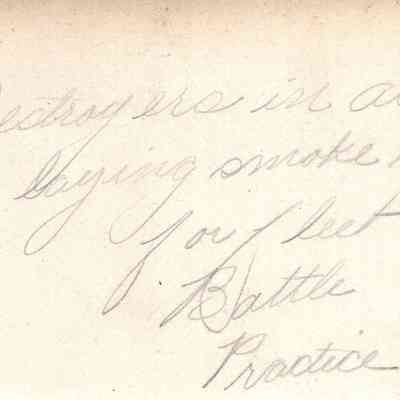 estroyers in a
laying smoke
for fleet
Battle
Practice